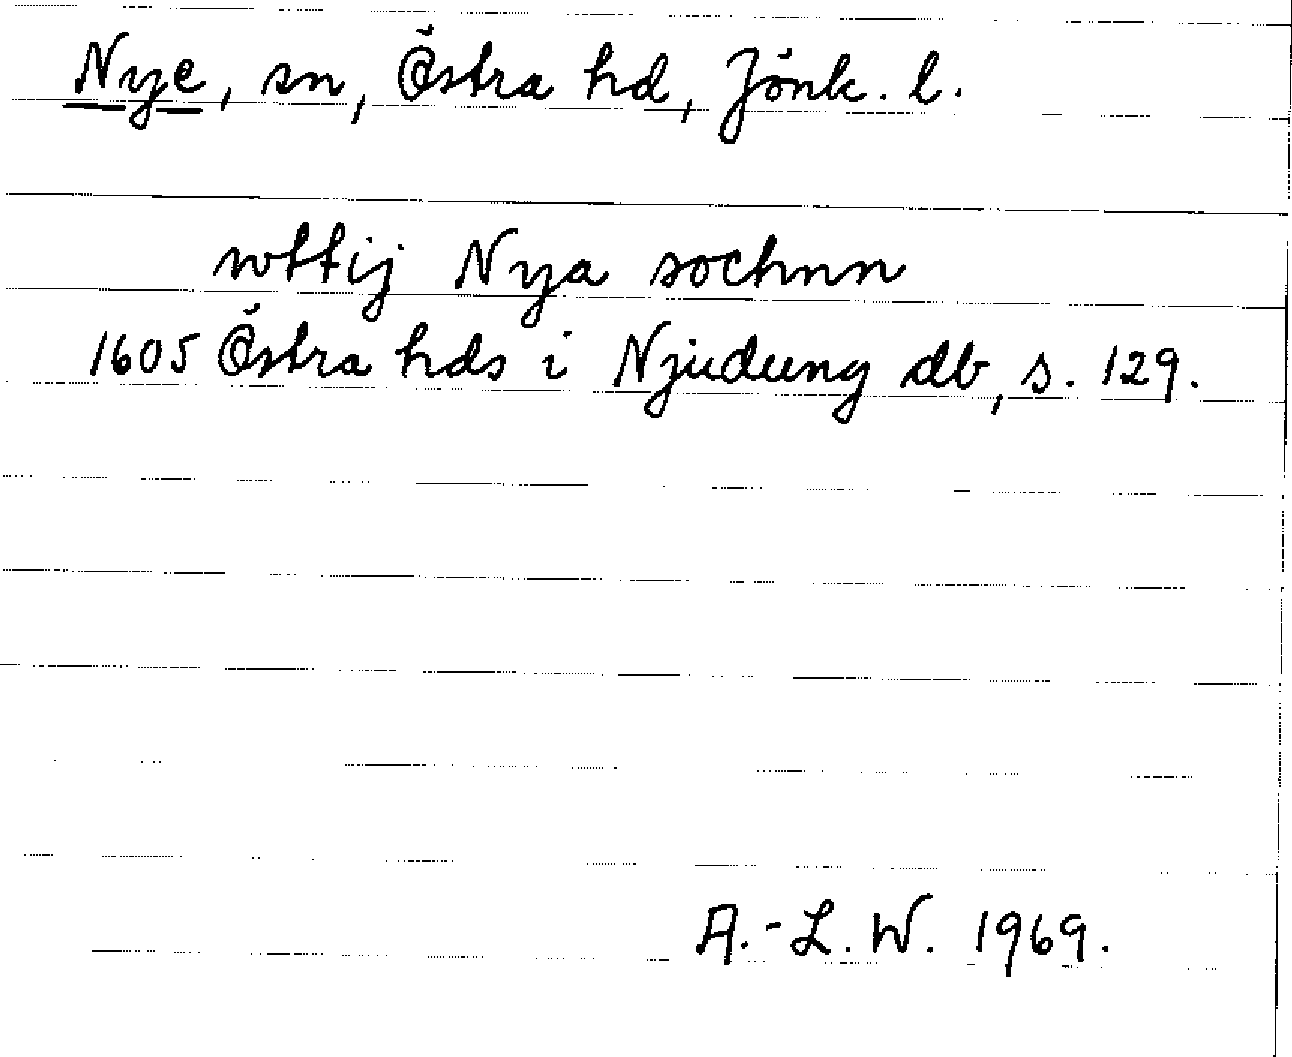 Nye, sn, Östra hd, Jönk. l.
wttij Nya sochnn
1605 Östra hds i Njudung db, s. 129.
A.-L. W. 1969.